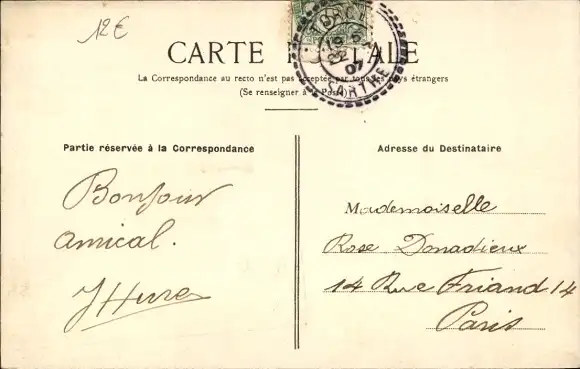 12€
TORCÉ
19 5
22
07
SARTHE
CARTE P TALE
La Correspondance au recto n'est pas acceptée par tous les pays étrangers
(Se renseigner à la Poste)
Partie réservée à la Correspondance
Bonjour
amical.
Adresse du Destinataire
Mademoiselle
Rose Donadieux
14 Rue Friand 14
Paris